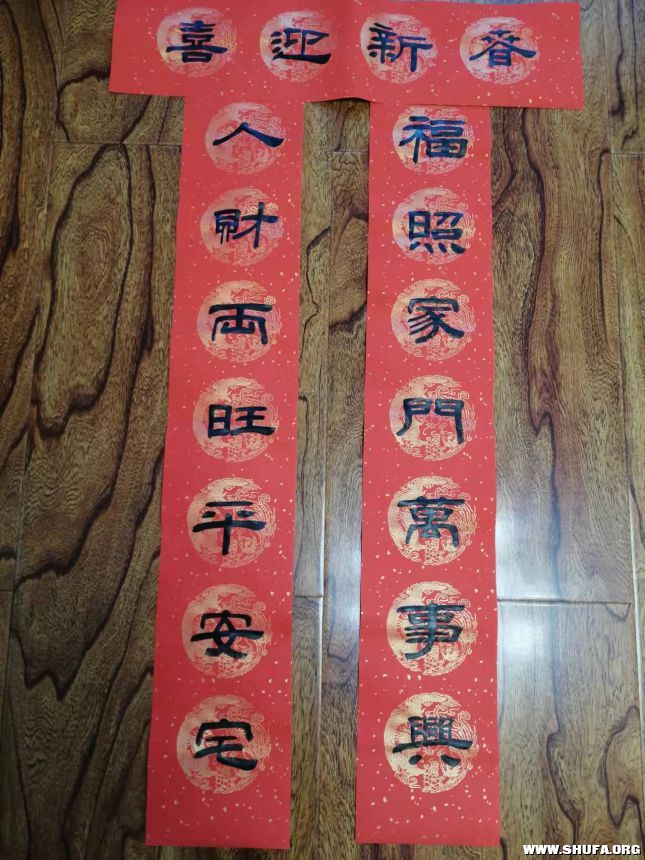 喜迎新春
福照家門萬事興
人財兩旺平安宅
WWW.SHUFA.ORG